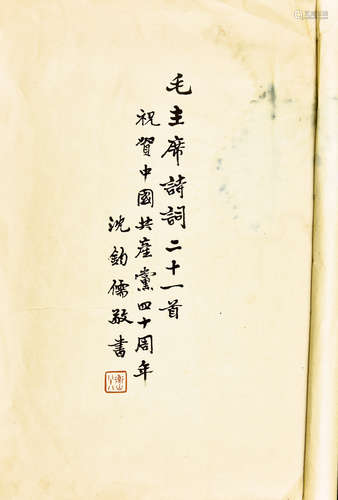 毛主席詩詞二十一首
祝賀中國共產黨四十周年
沈鈞儒敬書